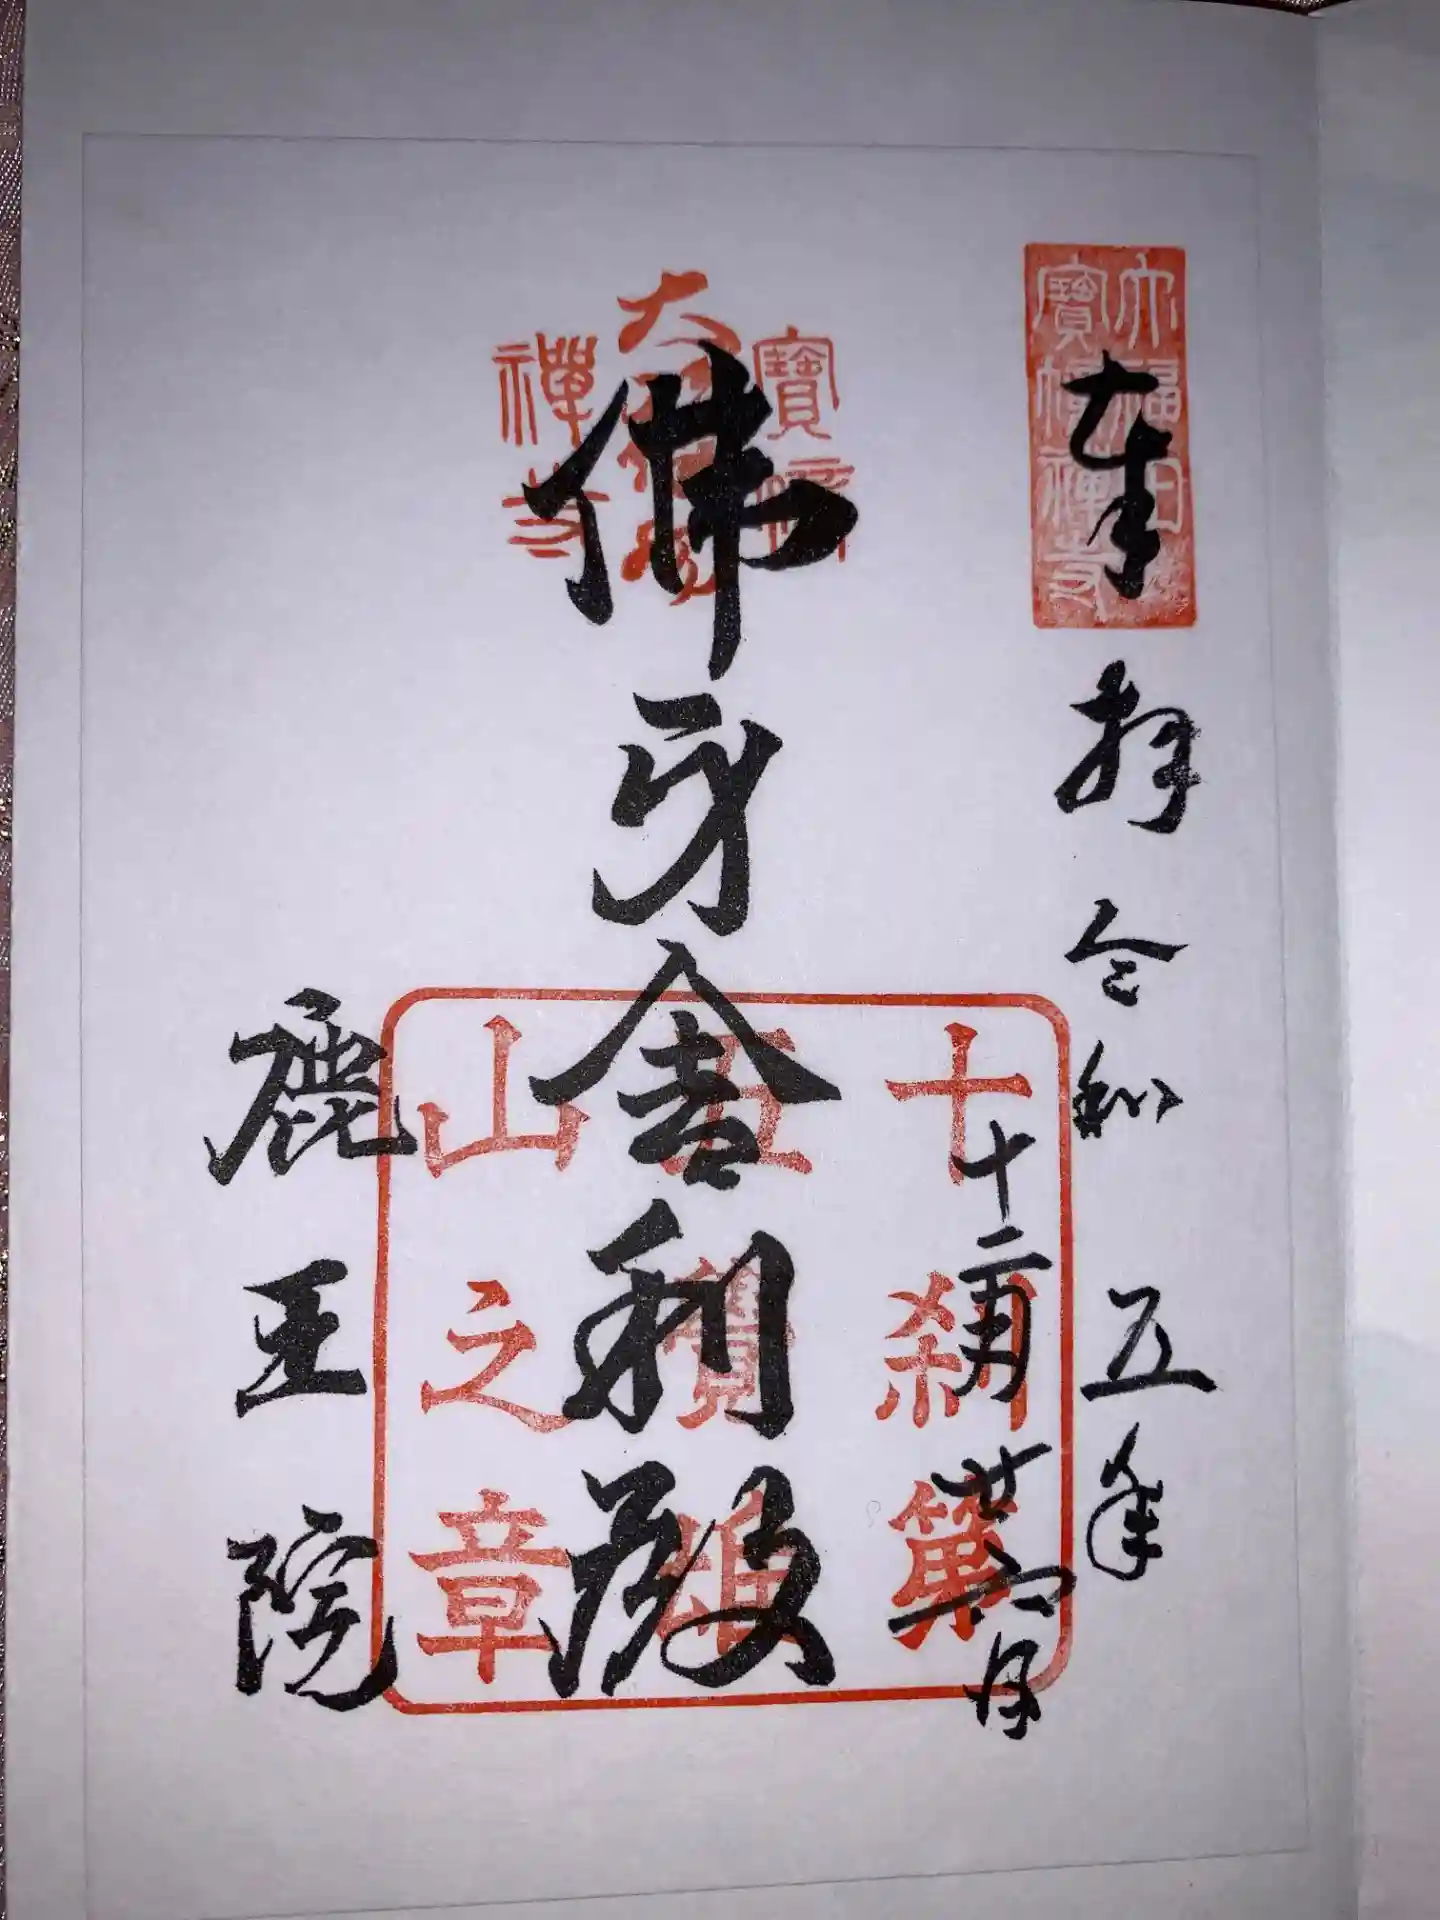 大福田
寶幢禪寺
奉拝 令和五年
十二月廿六日
寶幢
大福田
禪寺
佛牙舎利殿
十刹第
五覺雄
山之章
鹿王院